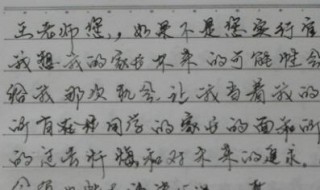 王老师您，，如果不是您实行官
我想我的家长未来的可能性会
给我那次机会，让我当着我的
所有在校同学的家长的面和所
的过去忏悔和对未来的追求。